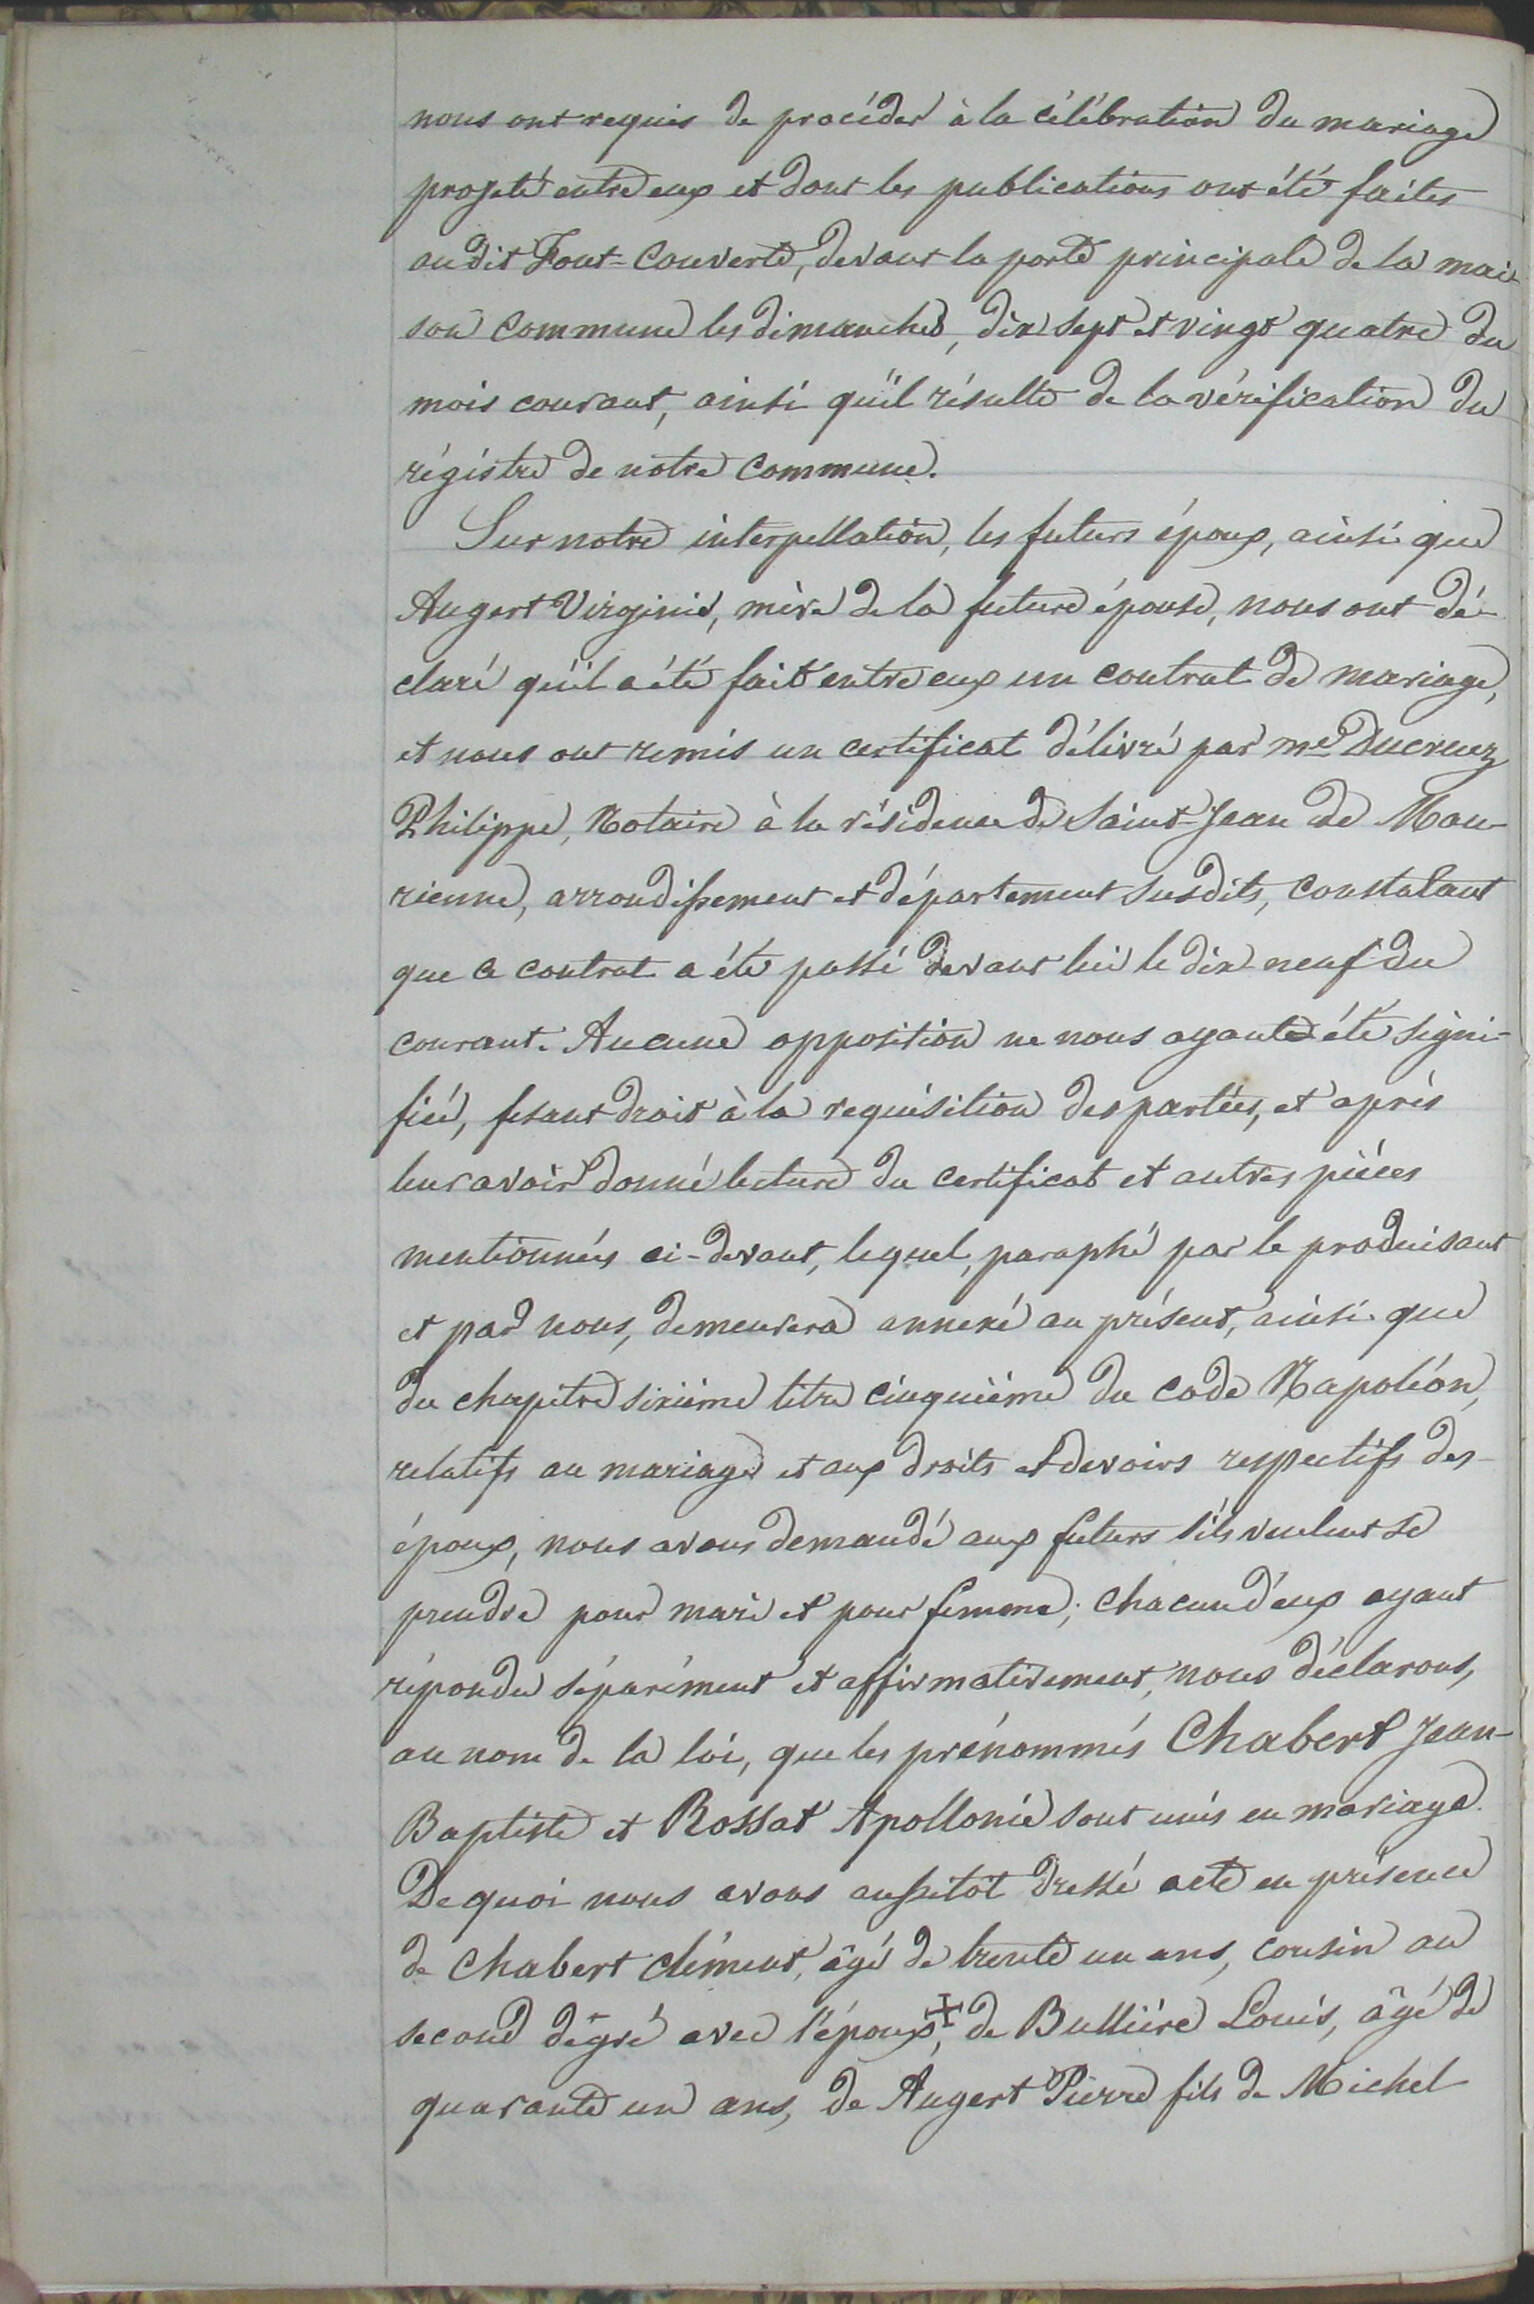 nous ont requis de procéder à la célébration du mariage
projeté entre eux et dont les publications ont été faites
au dit Font-Couverte, devant la porte principale de la mai-
son commune les dimanches, dix sept et vingt quatre du
mois courant, ainsi qu'il résulte de la vérification du
régistre de notre commune.
Sur notre interpellation, les futurs époux, ainsi que
Augert Virginie, mère de la future épouse, nous ont dé-
claré qu'il a été fait entre eux un contrat de mariage,
et nous ont remis un certificat délivré par me Ducruez
Philippe, Notaire à la résidence de Saint-Jean de Mau-
rienne, arrondissement et département susdits, constatant
que ce contrat a été passé devant lui le dix neuf du
courant. Aucune opposition ne nous ayante été signi-
fiée, fesant droit à la requisition des parties, et après
leur avoir donné lecture du certificat et autres pièces
mentionnées ci-devant, lequel, paraphé par le produisant
et par nous, demeurera annexé au présent, ainsi que
du chapitre sixième titre cinquième du code Napoléon,
relatifs au mariage et aux droits et devoirs respectifs des
époux, nous avons demandé aux futurs s'ils veulent se
prendre pour mari et pour femme; chacun d'eux ayant
répondu séparément et affirmativement, nous déclarons,
au nom de la loi, que les prénommés Chabert Jean-
Baptiste et Rossat Apollonie sont unis en mariage.
De quoi nous avons aussitôt dressé acte en présence
de Chabert Clément, âgé de trente un ans, cousin au
second dégré avec l'époux, de Bullière Louis, âgé de
quarante un ans, de Augert Pierre fils de Michel